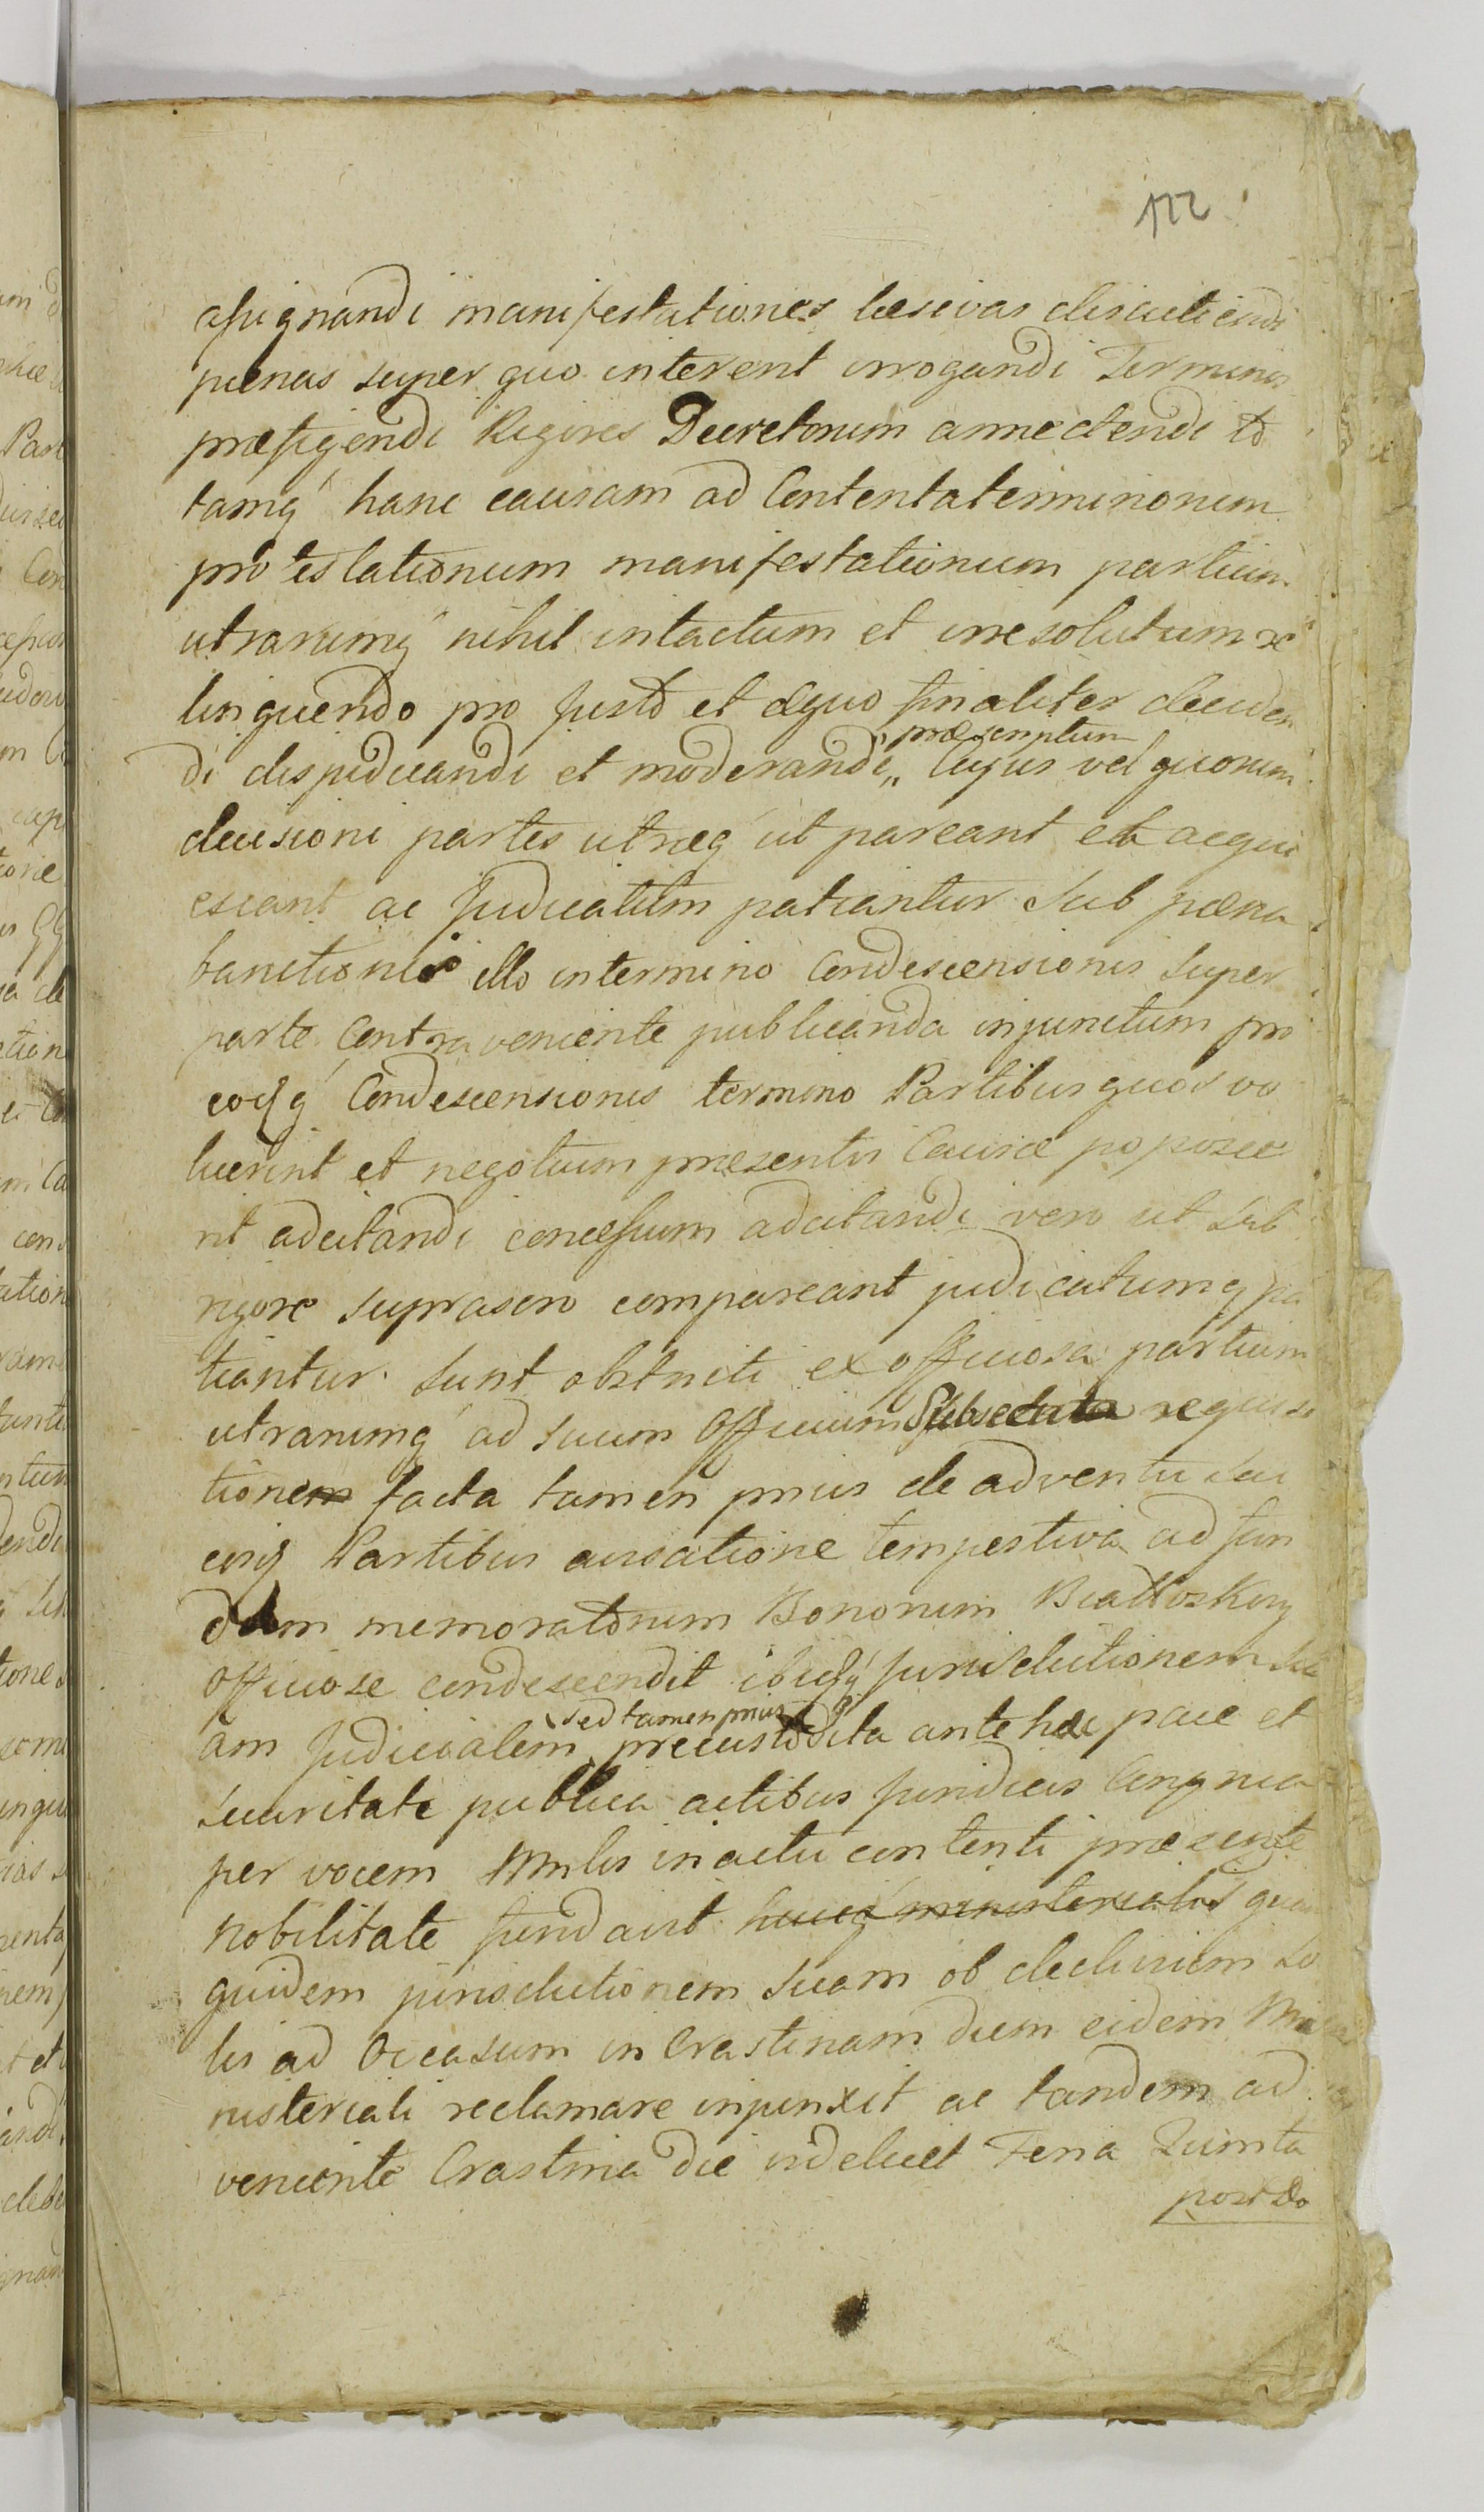 122
assignandi manifestationes læsivas discutiendi
pænas super quo interent irrogandi Terminos
præfigendi Rigores Decretorum annectendi to
tamq́ hanc causam ad Contenta terminorum
protestationum manifestationum partium
utrarumq́ nihil intactum et irresolutum re
linquendo pro justo et æquo finaliter deciden
di dispudicandi et moderandi,, Cujus vel quorum
præscriptum
decisioni partes utræq́ ut pareant et acqui
escant ac Judicatum patiantur sub pæna
bannitionis illo in termino Condescensionis super
parte Contraveniente publicanda injunctum pro
eodq́ Condescensionis termino Partibus quos vo
luerint et negotium præsentis Causæ poposce
rit adcitandi concessum adcitandi vero ut sub
rigore suprascro compareant judicatumq́ pa
tiantur. sunt obstricti ex officiosa partium
utrarumq́ ad suum Officium Subsecuta requisi
tione facta tamen prius de adventu sui
eisq́ Partibus avisatione tempestiva ad fun
dum memoratorum Bonorum Białłoskury
Officiose condescendit ibidq́ jurisdictionem su
am Judicialem precustodita ante hæc pace et
sed tamen prius
securitate publica actibus juridicis Congrua
per vocem Mnlis in actu contenti præsente
Nobilitate fundavit huicq́ ministerialis quam
quidem jurisdictionem suam ob declivium so
lis ad Occasum in Crastinam diem eidem Mi
nisteriali reclamare injunxit ac tandem ad
veniente Crastina die videlicet Feria Quinta
post Do